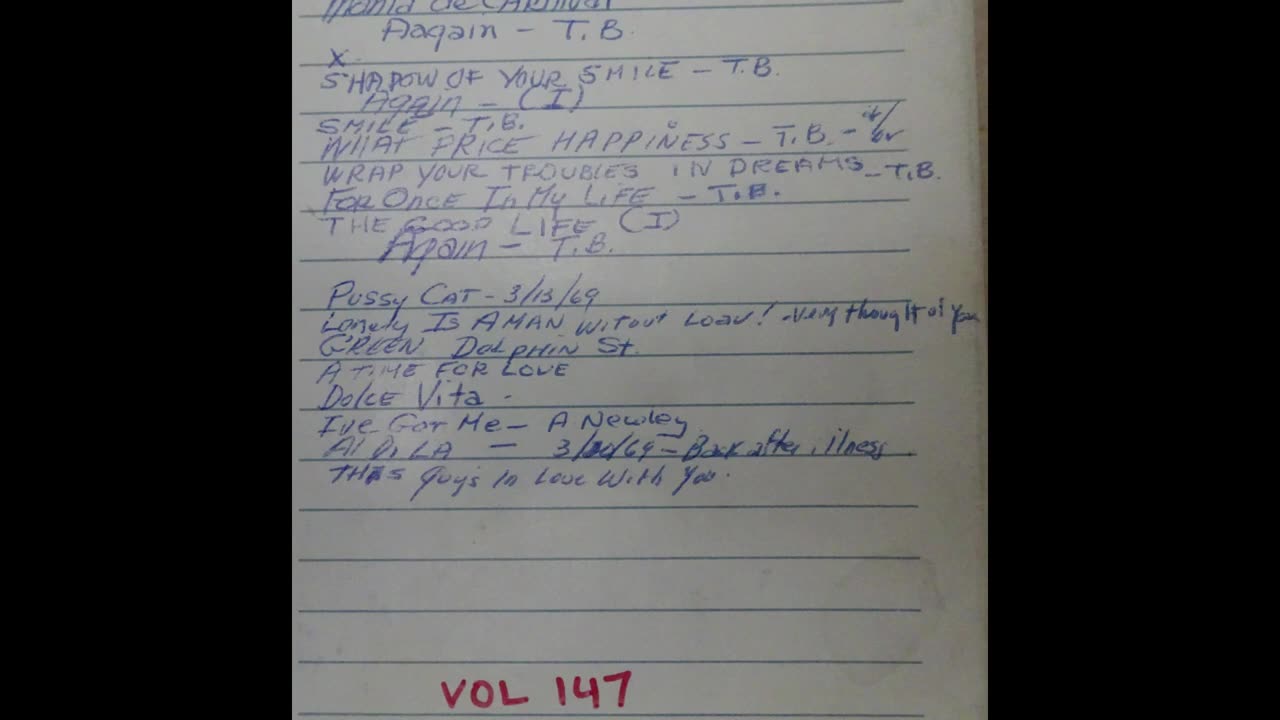 Mania de Carnival
Aagain - T.B.
X
SHADOW OF YOUR SMILE - T.B.
Again - (I)
SMILE - T.B.
WHAT PRICE HAPPINESS - T.B. -
WRAP YOUR TROUBLES IN DREAMS - T.B.
FOR ONCE IN MY LIFE - T.B.
THE GOOD LIFE (I)
Again - T.B.
PUSSY CAT - 3/13/69
Lonely IS A MAN WITOUT LOAV! - Very thought of You
GREEN DOLPHIN St.
A TIME FOR LOVE
DOLCE Vita -
I've Got Me - A Newley
Al Di LA - 3/20/69 - Back after illness
THIS Guys In Love With You.
VOL 147